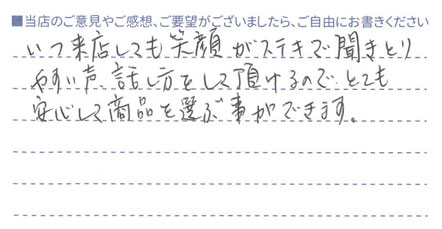 ■当店のご意見やご感想、ご要望がございましたら、ご自由にお書きください
いつ来店しても笑顔がステキで聞きとり
やすい声、話し方をして頂けるので、とても
安心して商品を選ぶ事ができます。